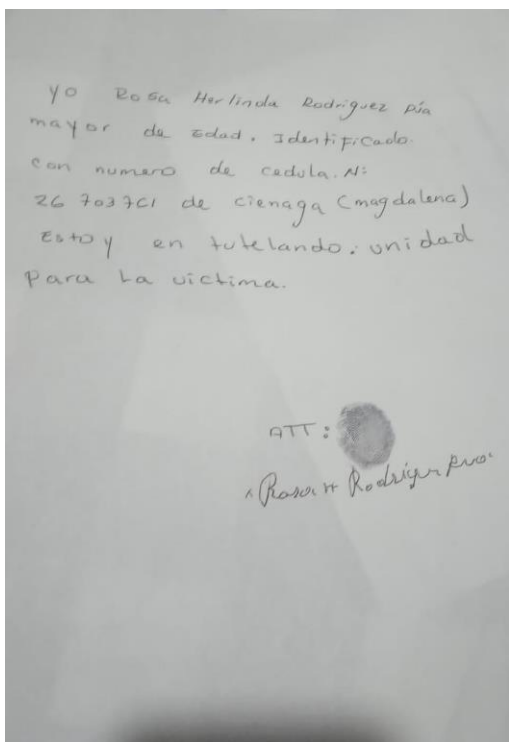 yo Rosa Herlinda Rodriguez
mayor de Edad. Identificado.
con numero de cedula. N:
de cienaga (magdalena)
Estoy en tutelando. unidad
para La victima.
ATT:
Rosa H Rodriguez